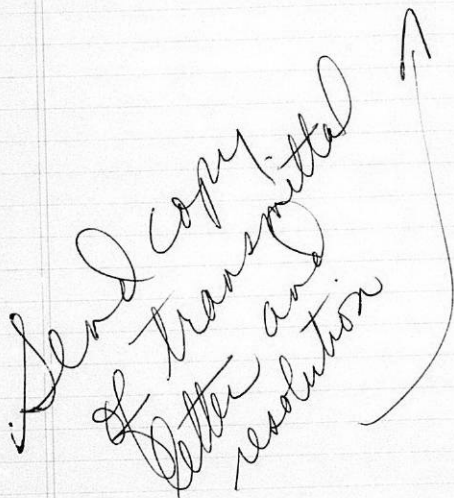 Send copy
of transmittal
letter and
resolution